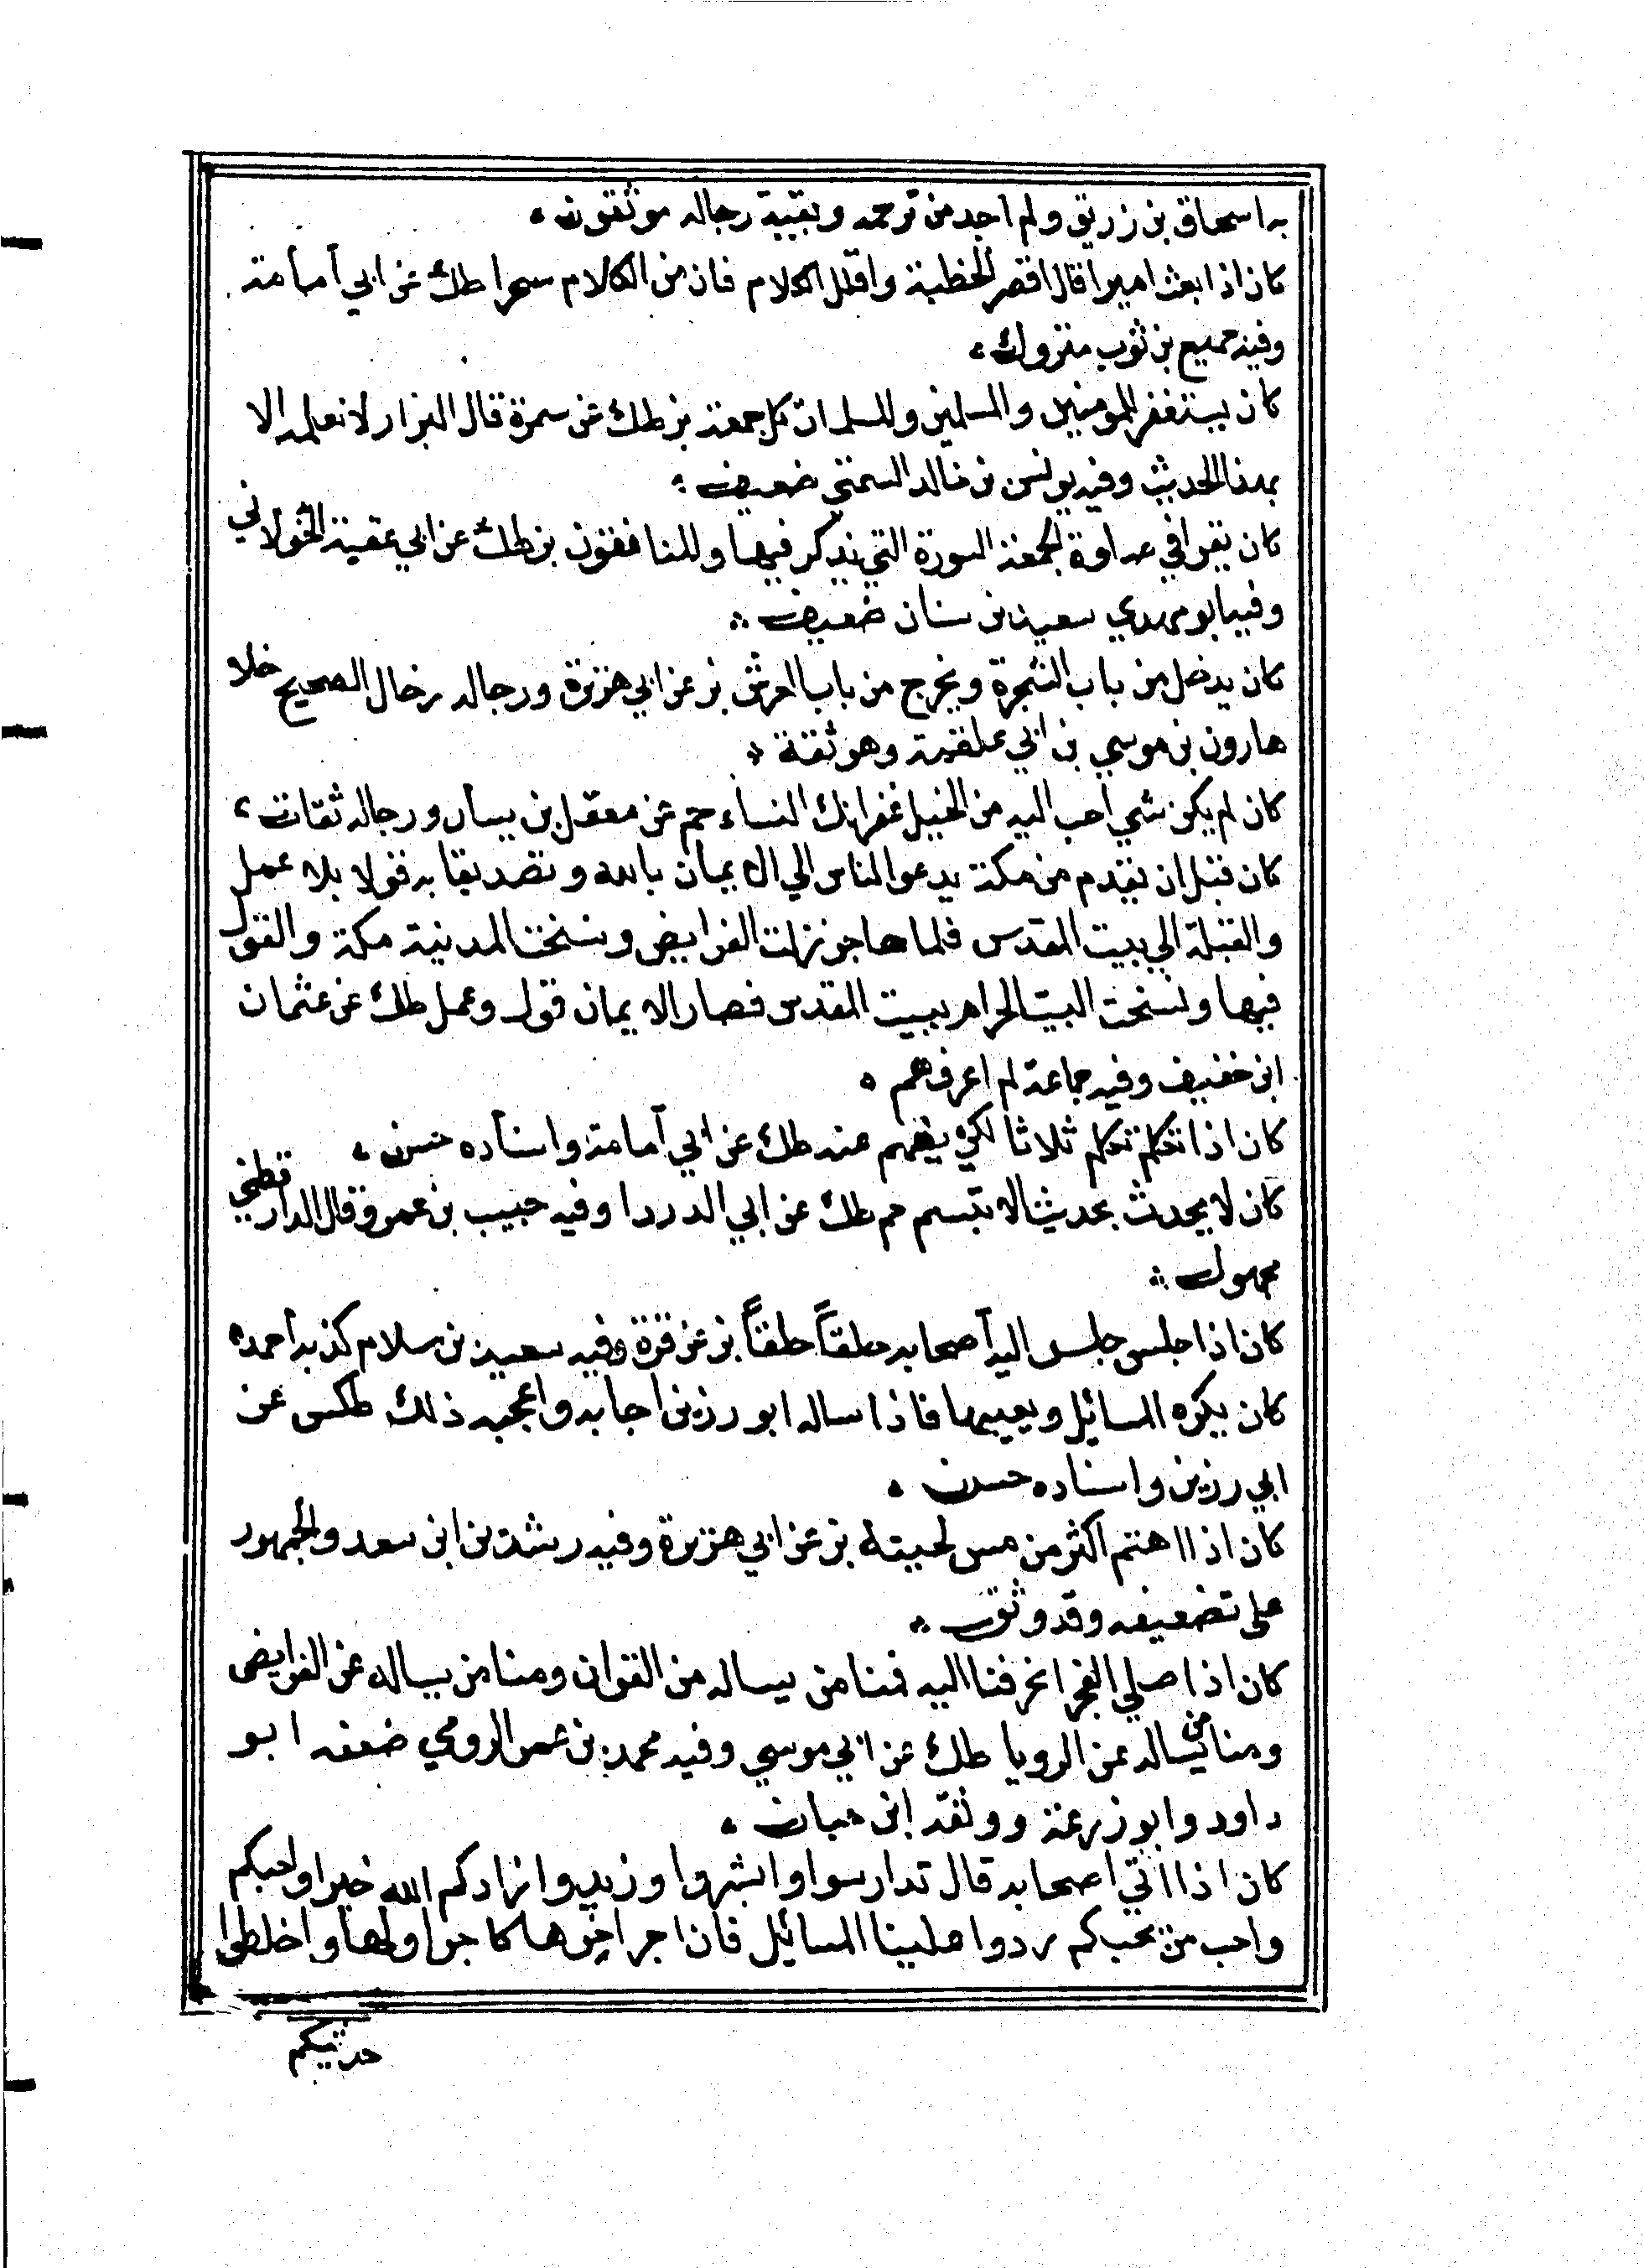 به اسحاق بن زريق ولم اجد من ترجمه وبقية رجاله موثقون
كان اذا بعث اميرا قال اقصر الخطبة واقلل الكلام فان من الكلام سحرا طك عن ابي أمامة
وفيه جميع بن ثوب متروك
كان يستغفر للمومنين والمسلمين والمسلمات كل جمعة بز طك عن سمرة قال البزار لا نعلمه الا
بهذا الحديث وفيه يونس بن خالد السمتي ضعيف
كان يقرا في عداوة الجمعة السورة التي يذكر فيها والمنافقون بز طك عن ابي عقبة الخولاني
وفيه ابو مهدي سعيد بن سنان ضعيف
كان يدخل من باب الشجرة ويخرج من باب المعرش بز عن ابي هريرة ورجاله رجال الصحيح خلا
هارون بن موسي بن ابي علقمة وهو ثقة
كان لم يكن شي احب اليه من الخيل غفرانك النساء حم عن معقل بن يسار ورجاله ثقات
كان قبل ان يقدم من مكة يدعو الناس الي الايمان بالله وتصديقا به قولا بلا عمل
والقبلة الي بيت المقدس فلما هاجر نزلت الفرايض ونسخت المدينة مكة والقول
فيها ونسخت البيت الحرام بيت المقدس فصار الايمان قول وعمل طك عن عثمان
ابن حنيف وفيه جماعة لم اعرفهم
كان اذا تكلم تكلم ثلاثا لكي يفهم عنه طك عن ابي أمامة واسناده حسن
كان لا يحدث بحديث الا تبسم حم طك عن ابي الدردا وفيه حبيب بن عمرو قال الدارقطني
مجهول
كان اذا جلس جلس اليه أصحابه حلقاً حلقاً بز عن قرة وفيه سعيد بن سلام كذبه أحمد
كان يكره المسائل ويعيبها فاذا ساله ابو رزين اجابه واعجبه ذلك طكس عن
ابي رزين واسناده حسن
كان اذا اهتم اكثر من مس لحيته بز عن ابي هريرة وفيه رشدين ابن سعد والجمهور
علي تضعيفه وقد وثق
كان اذا صلي الفجر انحرفنا اليه فمنا من يساله من القران ومنا من يساله عن الفرايض
ومنا من يساله عن الرويا طك عن ابي موسي وفيه محمد بن عمر الرومي ضعفه ابو
داود وابو زرعة ووثقه ابن حبان
كان اذا اتي اصحابه قال تدارسوا وابشروا وزيدوا زادكم الله خيرا واحبكم
واحب من يحبكم ردوا علينا المسائل فان اجر اخرها كاجر اولها واخلطوا
حديثكم